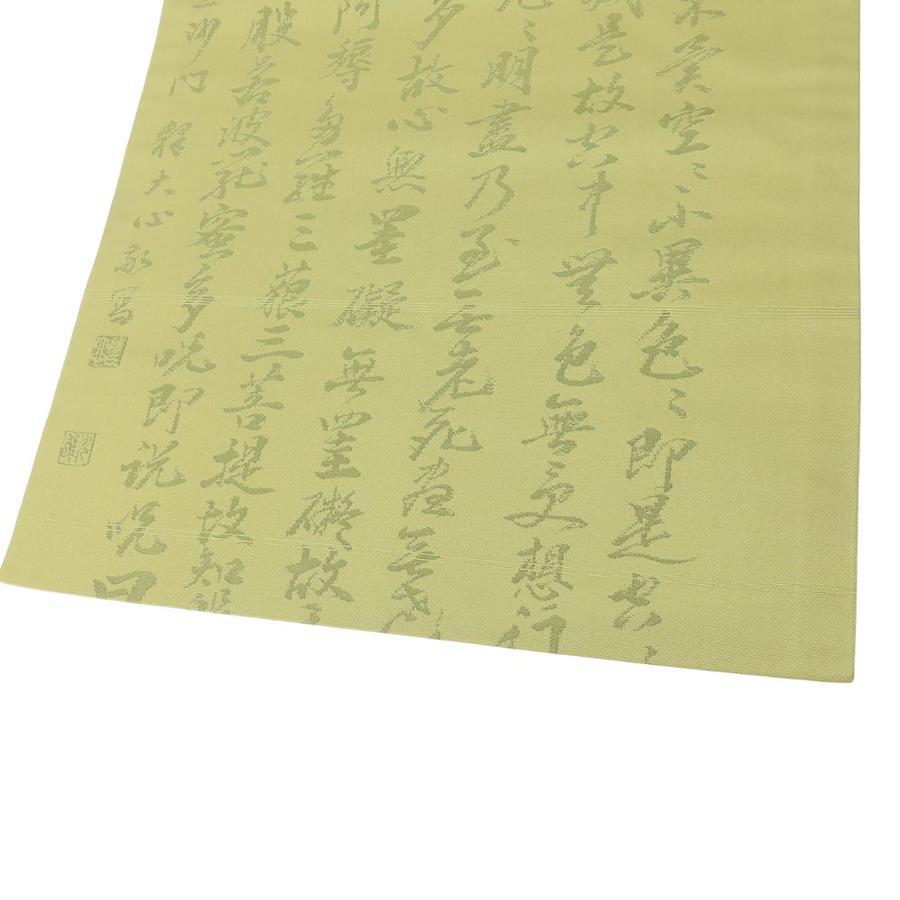 異空〻不異色〻即是空〻
是故空中無色無受想行
明盡乃至無老死盡無
多故心無罣礙無罣礙故
耨多羅三藐三菩提故知
般若波羅蜜多呪即説呪曰
沙門釋大心敬寫